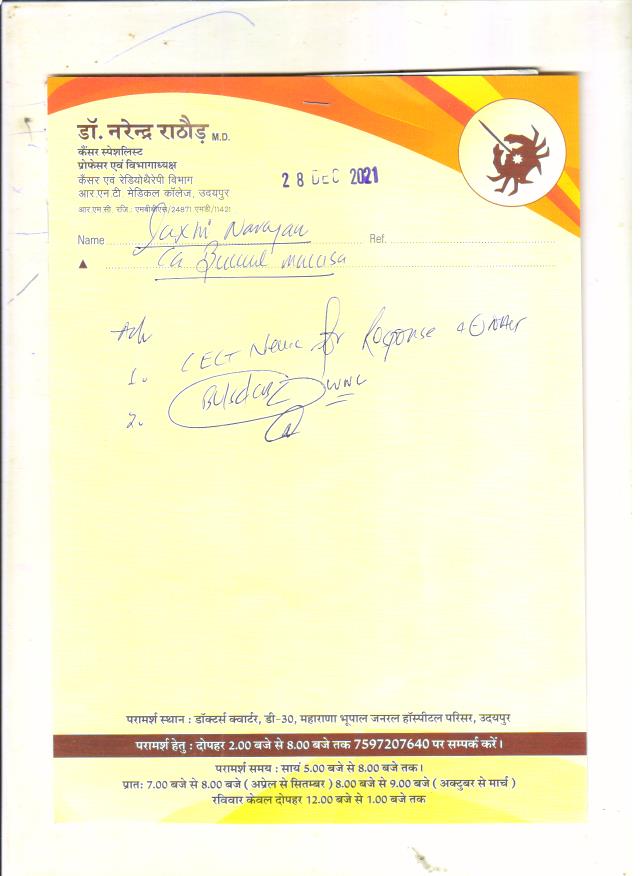 डॉ. नरेन्द्र राठौड़ M.D.
कैंसर स्पेशलिस्ट
प्रोफेसर एवं विभागाध्यक्ष
कैंसर एवं रेडियोथेरेपी विभाग
आर.एन.टी मेडिकल कॉलेज, उदयपुर
आर.एम.सी. रजि.: एमबीबीएस/24871 एमडी/11421
28 DEC 2021
Name Laxhi Narayan Ref.
Ca Buccal mucosa
Adv
1. CECT Neck for Response
2.
परामर्श स्थान : डॉक्टर्स क्वार्टर, डी-30, महाराणा भूपाल जनरल हॉस्पीटल परिसर, उदयपुर
परामर्श हेतु : दोपहर 2.00 बजे से 8.00 बजे तक 7597207640 पर सम्पर्क करें।
परामर्श समय : सायं 5.00 बजे से 8.00 बजे तक।
प्रातः 7.00 बजे से 8.00 बजे ( अप्रेल से सितम्बर ) 8.00 बजे से 9.00 बजे ( अक्टुबर से मार्च )
रविवार केवल दोपहर 12.00 बजे से 1.00 बजे तक